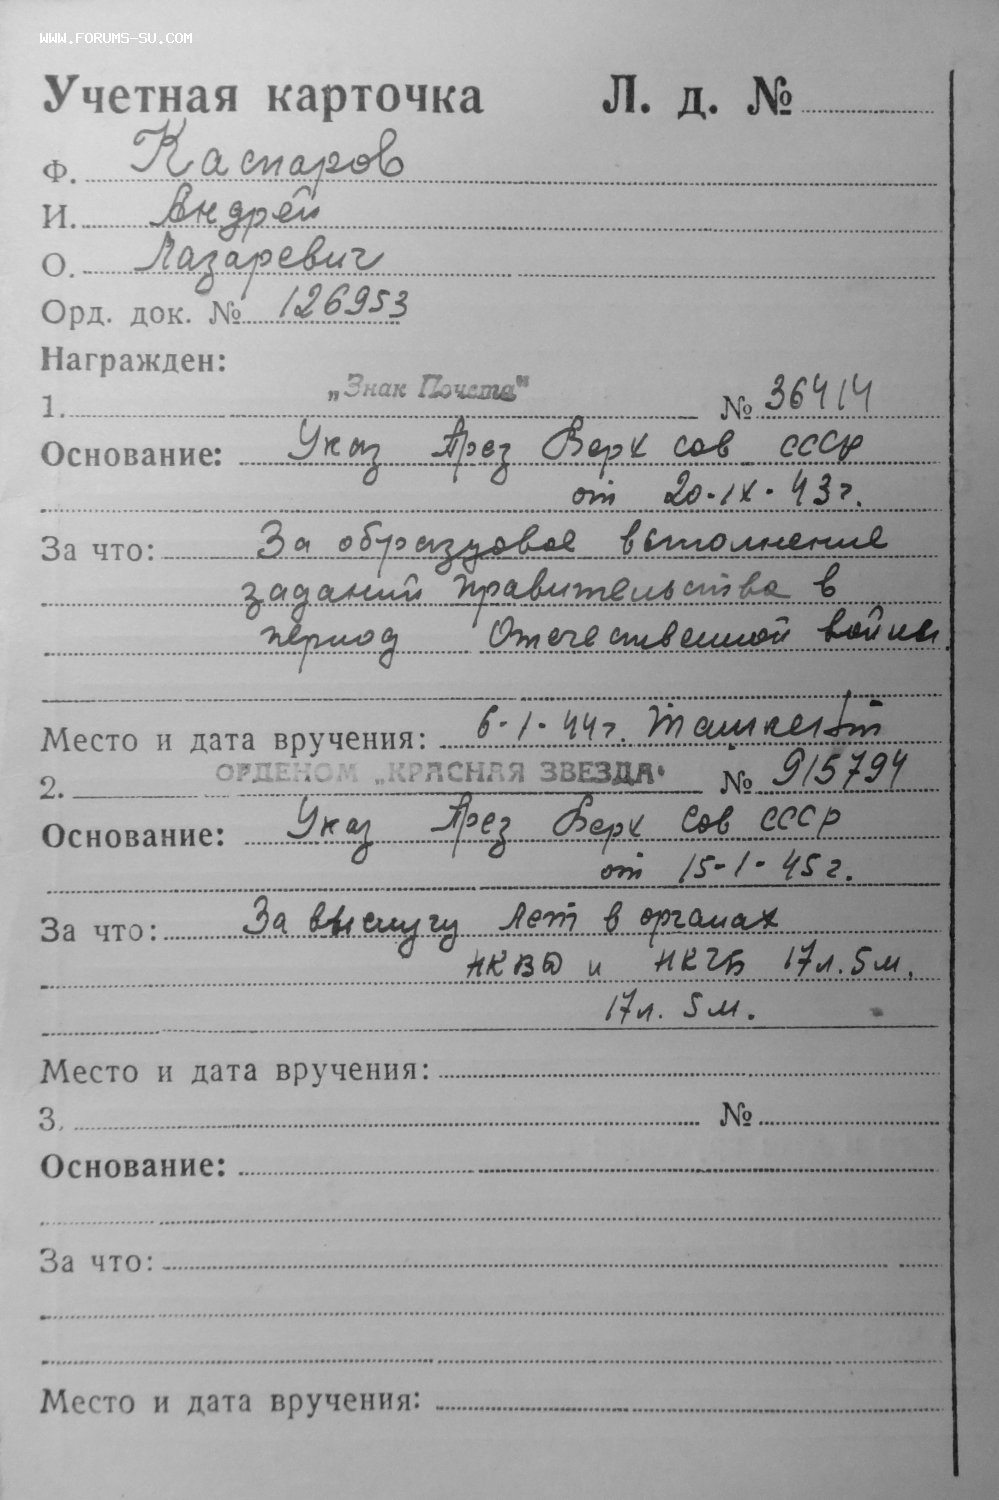 WWW.FORUMS-SU.COM
Учетная карточка Л. д. №
Ф. Каспаров
И. Андрей
О. Лазаревич
Орд. док. № 126953
Награжден:
1. „Знак Почета" № 36414
Основание: Указ През Верх Сов СССР
от 20-IX-43г.
За что: За образцовое выполнение
заданий правительства в
период Отечественной войны.
Место и дата вручения: 6-1-44г. Ташкент
2. ОРДЕНОМ „КРАСНАЯ ЗВЕЗДА" № 915794
Основание: Указ През Верх Сов СССР
от 15-1-45г.
За что: За выслугу лет в органах
НКВД и НКГБ 17л. 5м.
17л. 5м.
Место и дата вручения:
3. №
Основание:
За что:
Место и дата вручения: